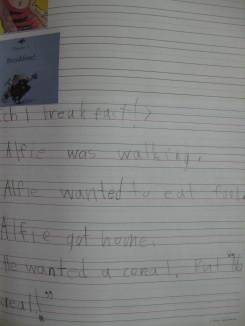 Breakfast!
ch 1 breakfast!>
Alfie was walking.
Alfie wanted to eat food.
Alfie got home.
He wanted a cereal. But "No
cereal!"